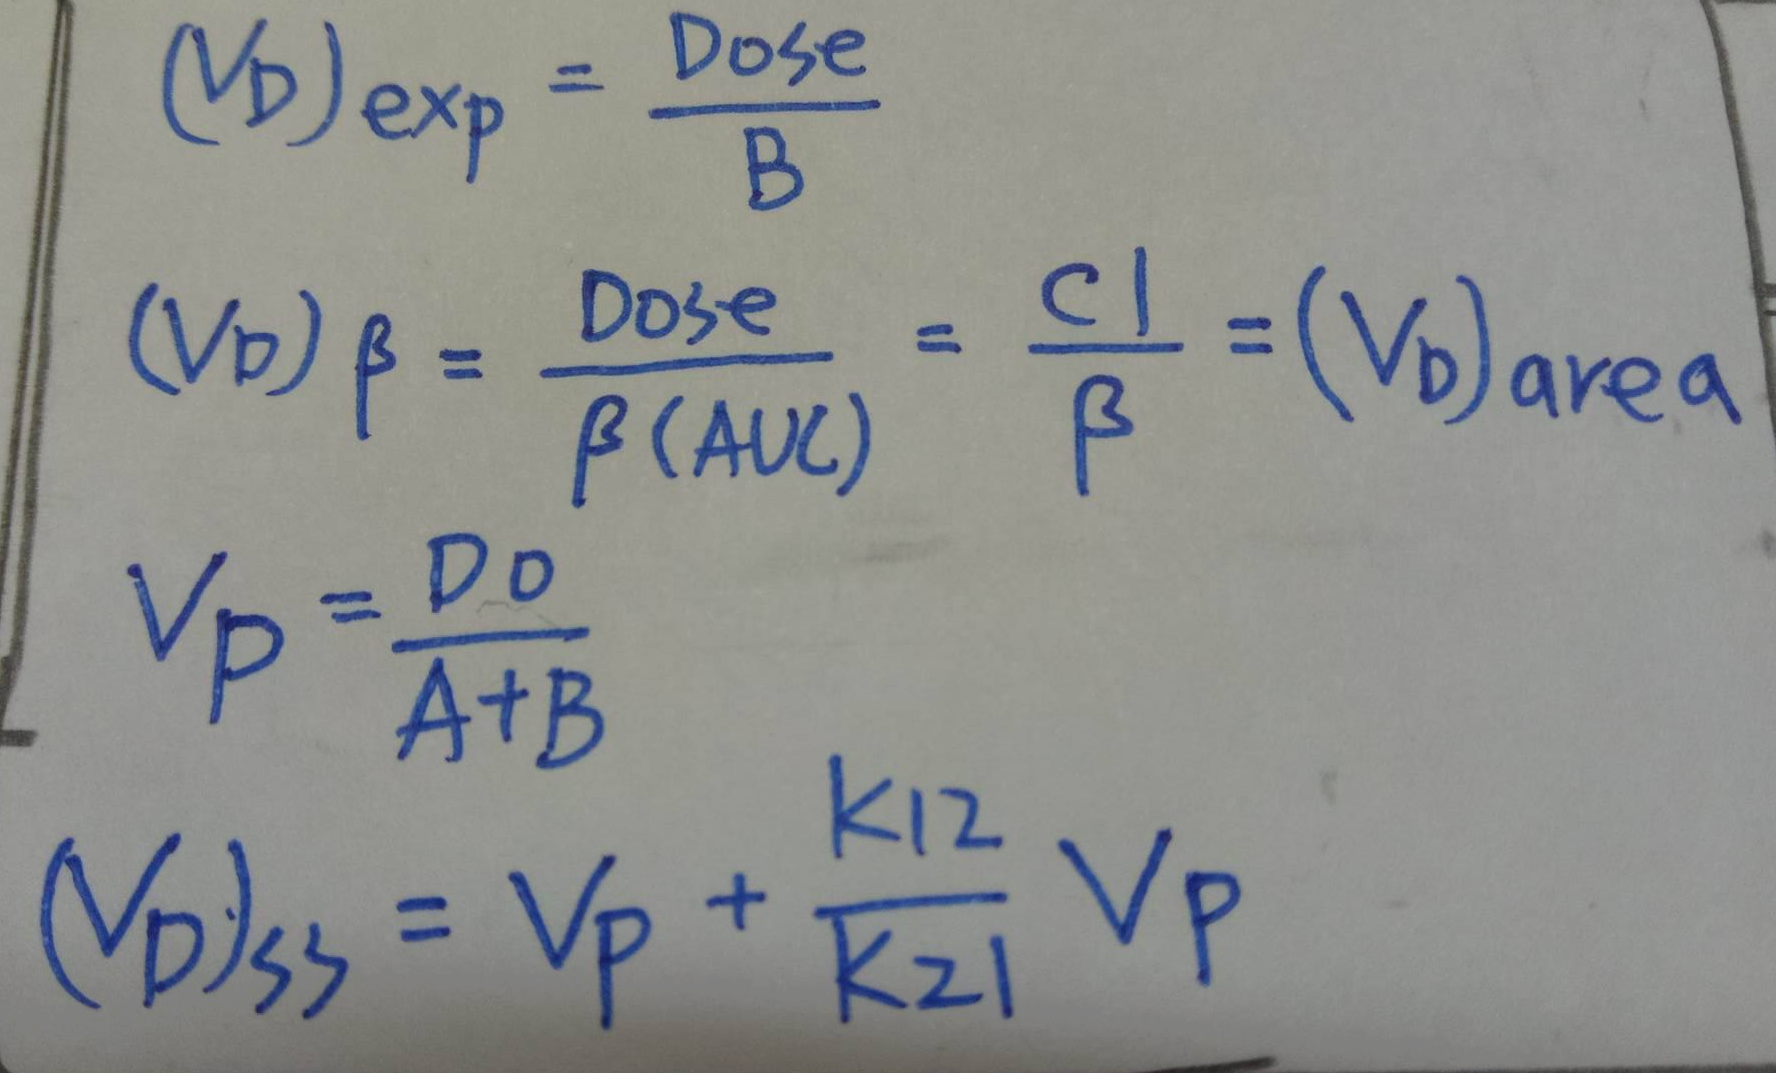 (VD)exp = Dose / B
(VD)β = Dose / β(AUC) = Cl / β = (VD)area
Vp = D0 / A+B
(VD)ss = Vp + K12 / K21 Vp